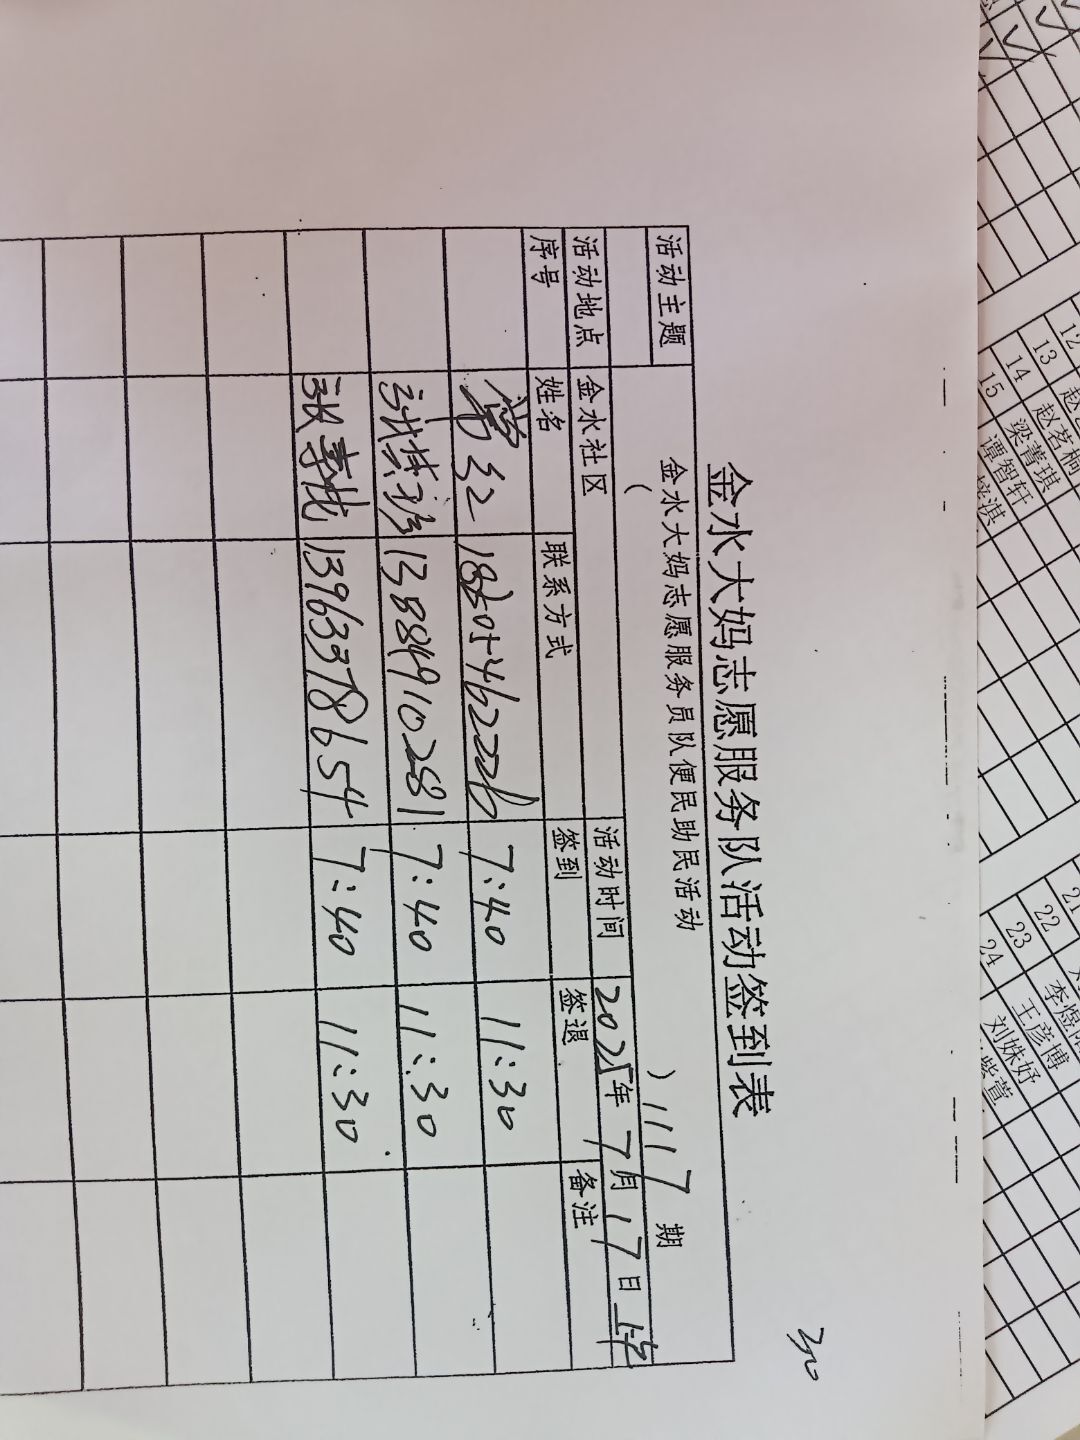 30
金水大妈志愿服务队活动签到表
活动主题 金水大妈志愿服务员队便民助民活动
( ) 1117 期
活动地点 金水社区 活动时间 2025年 7月 17日 上午
序号 姓名 联系方式 签到 签退 备注
常红 18605462226 7:40 11:30
13884910281 7:40 11:30
张春花 13963378654 7:40 11:30
12
13 赵茗桐
14 梁菁琪
15 谭智轩
淇
21
22 李煜
23 王彦博
24 刘姝妤
紫萱